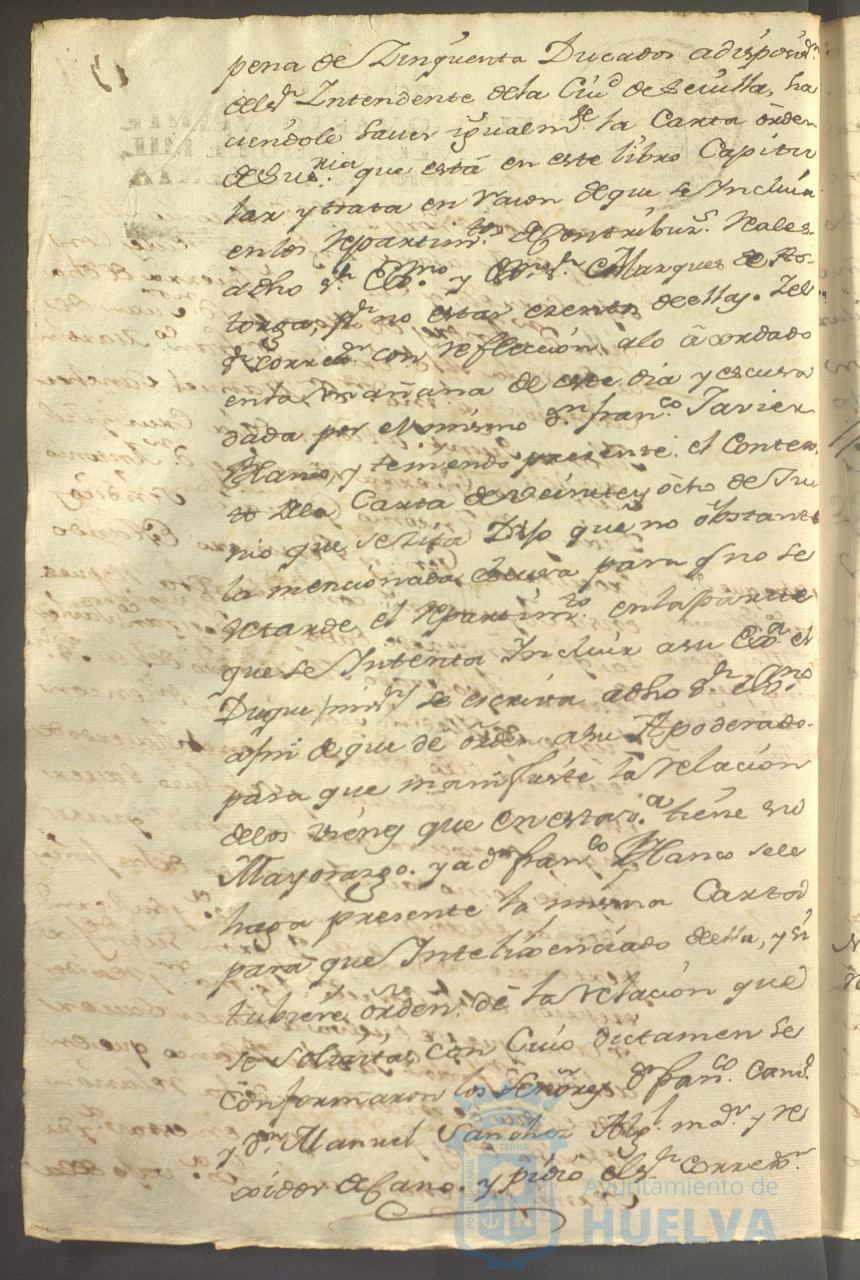 pena de Zinquenta Ducados a disposiⁿ.
del Sʳ Intendente dela Ciuᵈ de Sevilla, ha
ciendole saver igualmᵗᵉ. la Carta órden
que está en este libro Capitu
lar y trata en razon de que se Incluia
en los repartimᵗᵒˢ. de Contribuzˢ. Reales
adho Sʳ. Exᵐᵒ. y Marques de As-
torga, pʳ no estar exento de ellas. Iel
Sʳ correxᵒʳ con reflección alo ácordado
enta mañana de este dia y escusa
dada por el mismo Dⁿ franᶜᵒ. Javier
Blanco, y teniendo presente el Conteni
to dela Carta de veinte y ócho de Ju
nio que se zita Dijo que no óbstante
la mencionada escusa para q no se
retarde el Repartimᵗᵒ. en la parte
que se Intenta Incluir a su Exᵃ el
Duque /mi Sʳ/ se escriva adho Sʳ Exᵐᵒ
afin de que de órden a su Apoderado
para que manifieste la relación
delos vienes que en esta vᵃ. tiene su
Mayorazgo. y a dⁿ franᶜᵒ Blanco sele
haga presente la misma Carta
para que Intelixenciado de ella, y si
tubiere órden. dé la relación que
se solicita, con Cuio dictamen se
conformaron los Señores Dⁿ franᶜᵒ.
y Dⁿ Manuel Sanchez Algˡ. mᵒʳ. y re
xidor decano. y pidió el Sʳ correxᵒʳ.
Ayuntamiento de
HUELVA